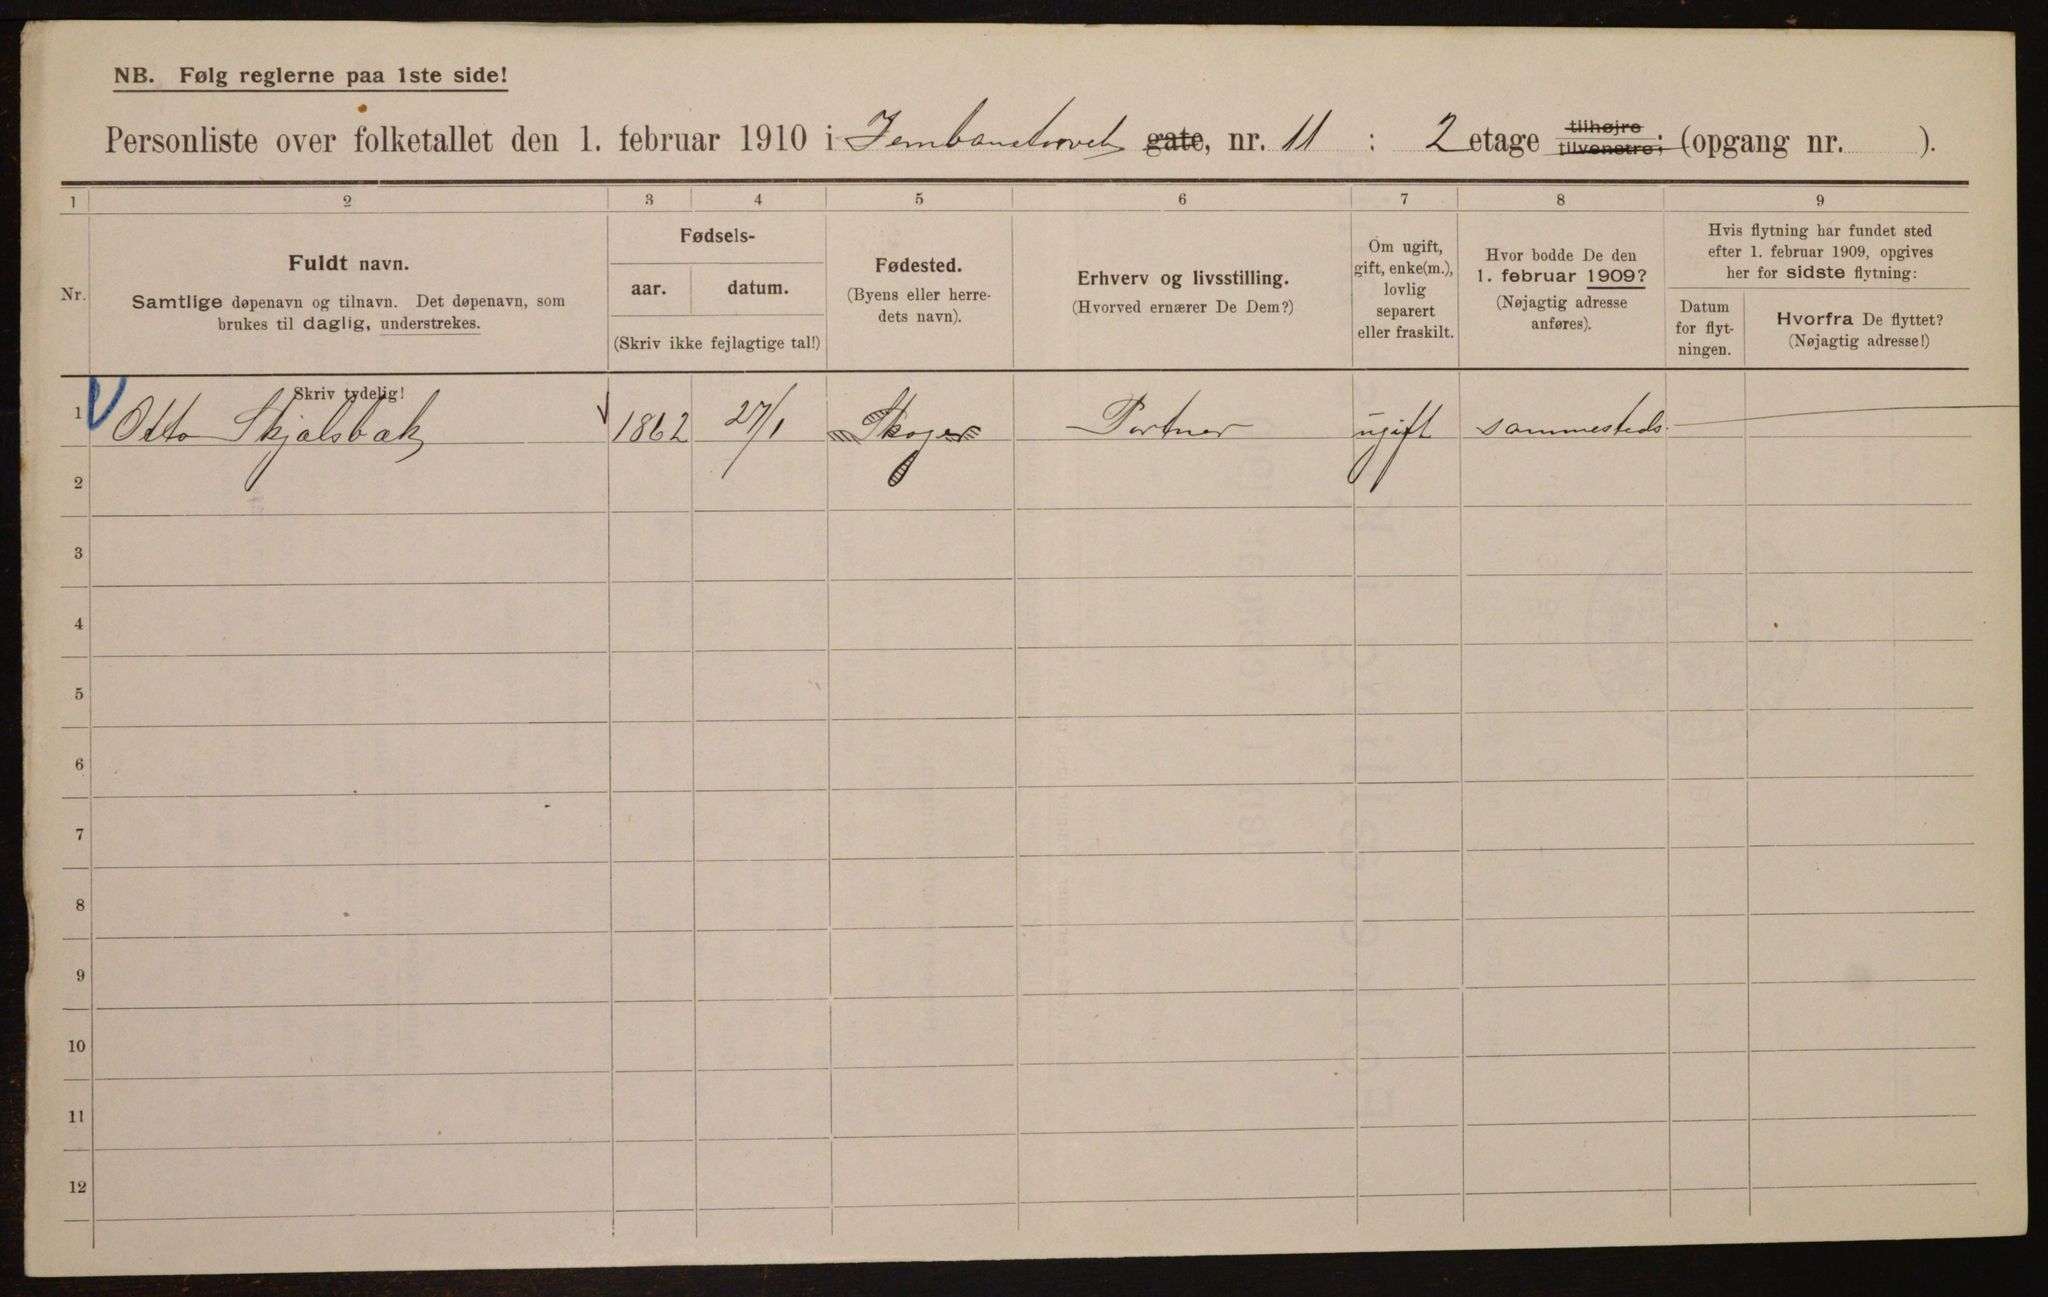 NB. Følg reglerne paa 1ste side!
Personliste over folketallet den 1. februar 1910 i Jernbanetorvet gate, nr. 11 : 2 etage tilhøjre tilvenstre; (opgang nr. ).
1 2 3 4 5 6 7 8 9
Nr.
Fuldt navn.
Samtlige døpenavn og tilnavn. Det døpenavn, som
brukes til daglig, understrekes.
Fødsels-
aar. datum.
(Skriv ikke fejlagtige tal!)
Fødested.
(Byens eller herre-
dets navn).
Erhverv og livsstilling.
(Hvorved ernærer De Dem?)
Om ugift,
gift, enke(m.),
lovlig
separert
eller fraskilt.
Hvor bodde De den
1. februar 1909?
(Nøjagtig adresse
anføres).
Hvis flytning har fundet sted
efter 1. februar 1909, opgives
her for sidste flytning:
Datum
for flyt-
ningen.
Hvorfra De flyttet?
(Nøjagtig adresse!)
Skriv tydelig!
1 Otto Skjalsbæk 1862 27/1 Skoger Portner ugift sammesteds
2
3
4
5
6
7
8
9
10
11
12